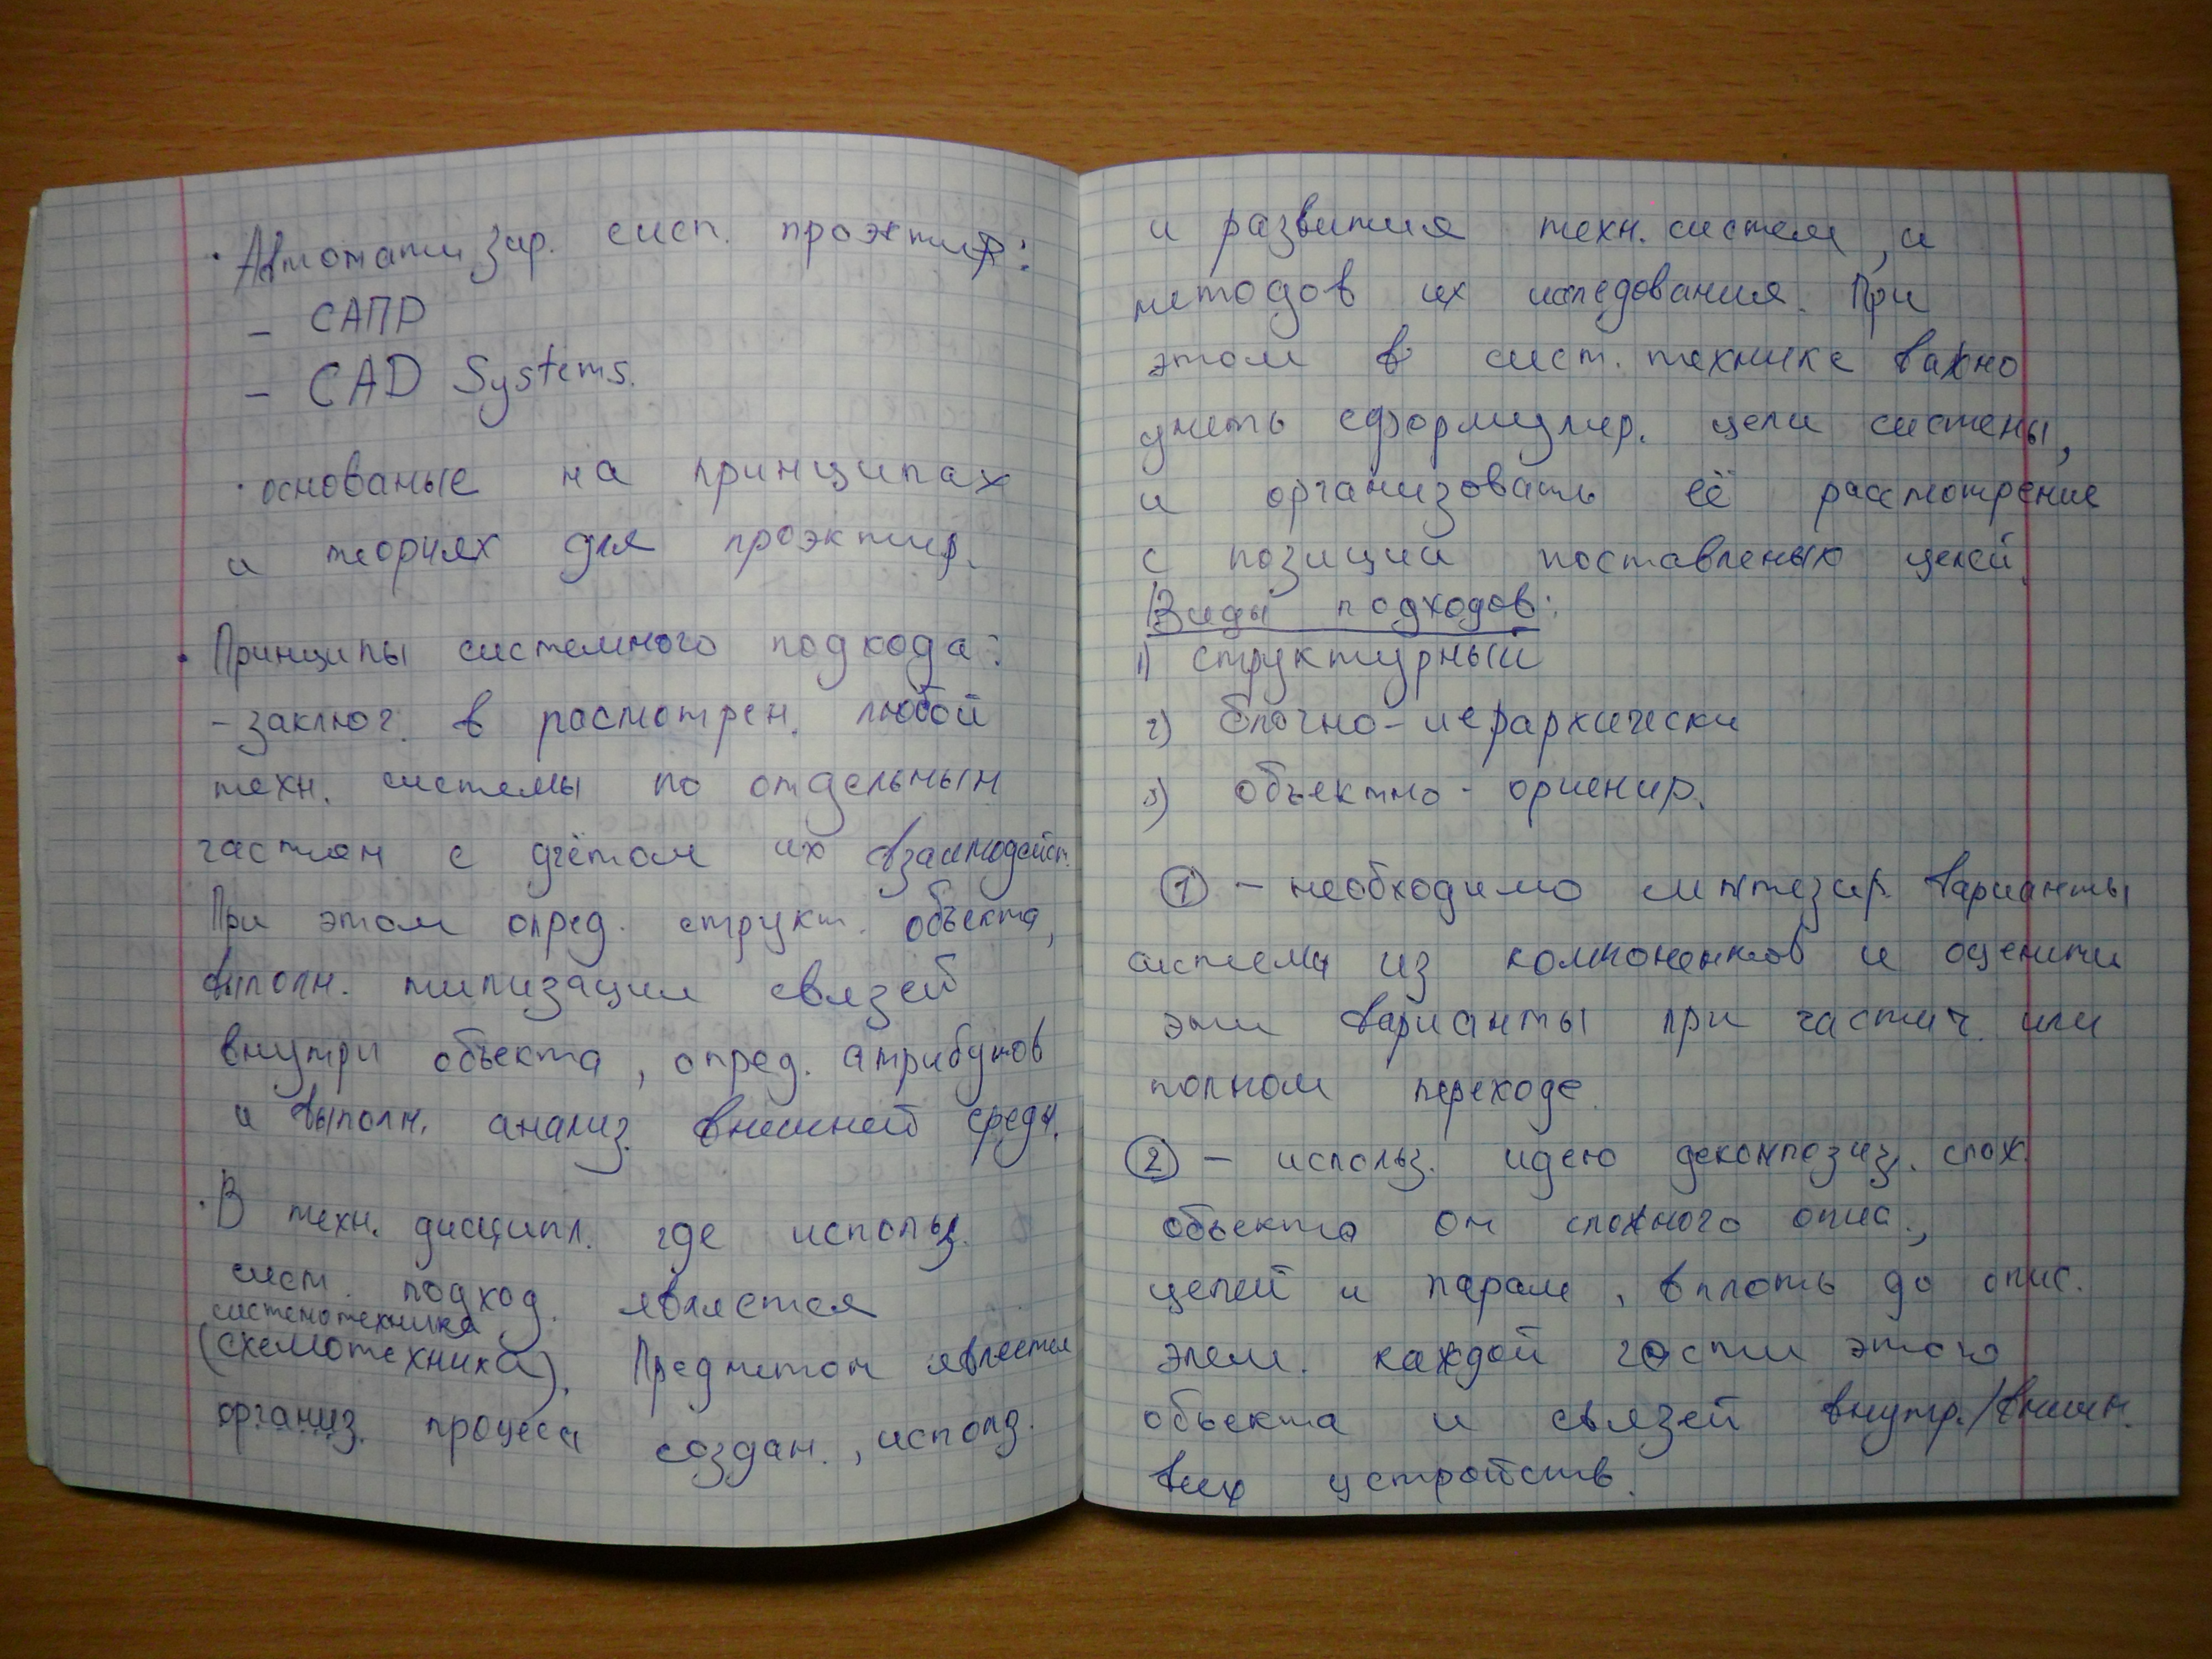 · Автоматизир. сисп. проэктир:
– САПР
– CAD Systems.
· основаные на принципах
и теориях для проэктир.
· Принципы системного подхода:
– заключ. в расмотрен. любой
техн. системы по отдельным
частям с учётом их взаимодейст.
При этом опред. структ. объекта,
выполн. типизации связей
внутри объекта, опред. атрибутов
и выполн. анализ. внешней среды.
· В техн. дисципл. где использ.
сист. подход. является
системотехника
(схемотехника). Предметом является
организ. процесса создан., использ.
и развития техн. систем, и
методов их иследования. При
этом в сист. технике важно
уметь сформулир. цели системы,
и организовать её рассмотрение
с позиции поставленых целей.
Виды подходов:
1) структурный
2) блочно-иерархически
3) объектно-ориенир.
① – необходимо синтезир. варианты
системы из компонентов и оценити
эти варианты при частич. или
полном переходе.
② – использ. идею декомпозиз. слож.
объекта от сложного опис.,
целей и парам, вплоть до опис.
элем. каждой части этого
объекта и связей внутр./внешн.
вих устройств.